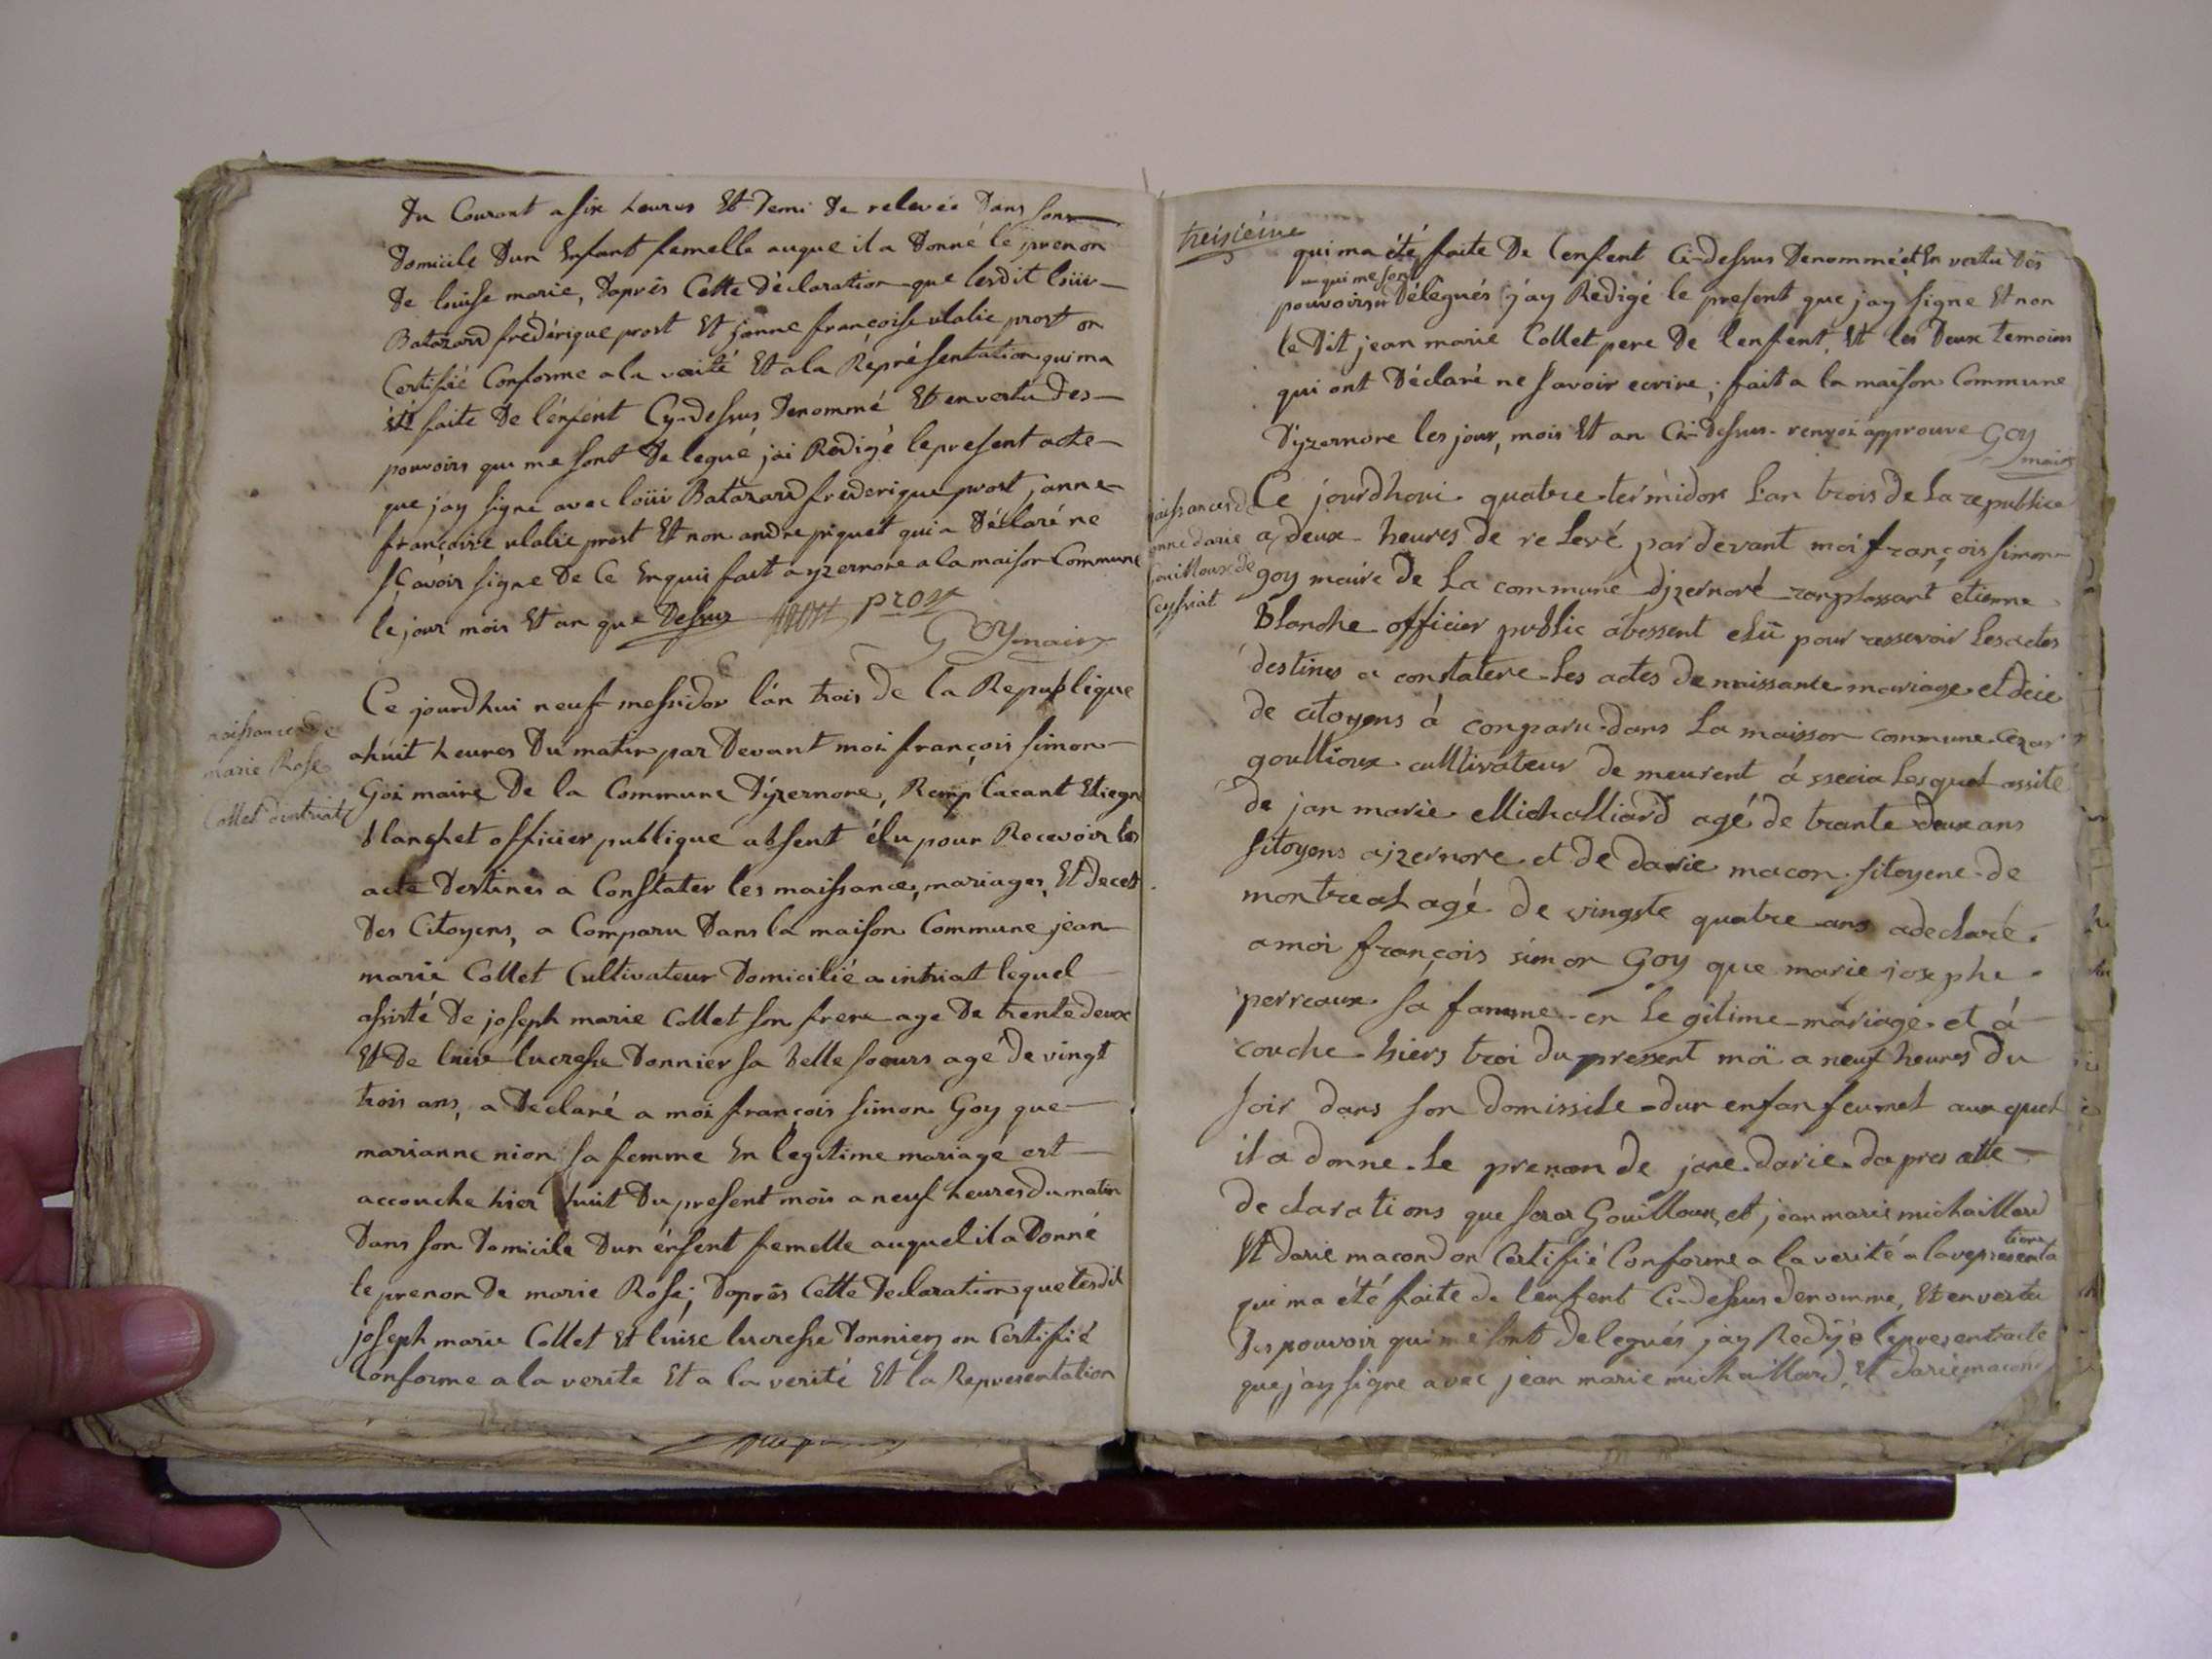 du Courant a six heures Et demi de relevée dans son
domicile dun Enfant femelle auque il a donné le prenon
de louise marie, daprès Cette déclaration que lesdit loüis
Batazard frédérique prost Et janne françoise ulalie prost on
Certifié Conforme a la vérité Et a la Réprésentation qui ma
été faite de l'énfent Cy-dessus, denommé Et en vertu des
pouvoirs qui me sont de legué jai Redigé le present acte
que jay signé avec loüis Batazard frederique prost janne
françoise ulalie prost Et non andre piquet qui a déclaré ne
sçavoir signe de Ce Enquis fait a yzernore a la maison Commune
le jour mois Et an que dessus prost prost
Goy maire
naissance de
marie Rose
Collet dintriat
Ce jourdhui neuf messidor l'an trois de la Republique
a huit heures du matin par devant moi françois simon
Goi maire de la Commune d'yzernore, Remplacant Etiegne
blanchet officier publique absent élu pour Recevoir les
acte destinés a Constater les naissances, mariages, Et decet
des Citoyens, a Comparu dans la maison Commune jean
marie Collet Cultivateur domicilié a intriatt lequel
assisté de joseph marie Collet son frere age de trente deux
Et de luise lucresse donnier sa belle soeurs agé de vingt
trois ans, a declaré a moi françois simon Goy que
marianne nion sa femme En legitime mariage est
accouche hier huit du present mois a neuf heures du matin
dans son domicile dun énfent femelle auquel il a donné
le prenon de marie Rose; daprès Cette declaration que lesdit
joseph marie Collet Et luise lucresse donnier on Certifié
Conforme a la verite Et a la verité Et la Representation
treisiéme
qui ma été faite de lenfent Ci-dessus denommé, et En vertu des
qui me sont
pouvoirs délegués j'ay Redigé le present que jay signe Et non
le dit jean marie Collet pere de lenfent, Et les deux temoins
qui ont déclaré ne savoir ecrire; fait a la maison Commune
d'yzernore les jour, mois Et an Ci-dessus. renvoi approuve Goy
maire
naissance de
janne darie
Gouilloux de
Ceyssiat
Ce jourdhoui quatre termidor l'an trois de la republice
a deux heures de relevé pardevant moi françois simon
goy maire de la commune djzernoré ranplassant etienne
Blanche officier publlic abessent elü pour resservoir les actes
destines a constatere les actes de naissante mariage et deie
de citoyens á conparu dans la maisson commune Cezar
goullioux cultlivateur de meurent á sseeia lesquel assite
de jan marie Michalliard agé de trante deux ans
sitoyens ajzernore et de darie macon sitoyene de
montreal agé de vingste quatre ans a declaré
a moi françois simon Goy que marie josephe
perreaux sa famme en legitime mariage et á
couche hiers troi du pressent moi a neuf heures du
soir dans son domissile dun enfan feumel auxquel
il a donne le prenom de jane darie dapres atte
declarations que sesar Gouilloux, et jean marie michaillard
tion
Et darie macond on Certifié Conforme a la verité a la representa
qui ma été faite de lenfent Ci-dessus denomme, Et en vertu
des pouvoir qui me sont delegués jay Redijé le present acte
que jay signe avec jean marie michaillard, Et darie macond